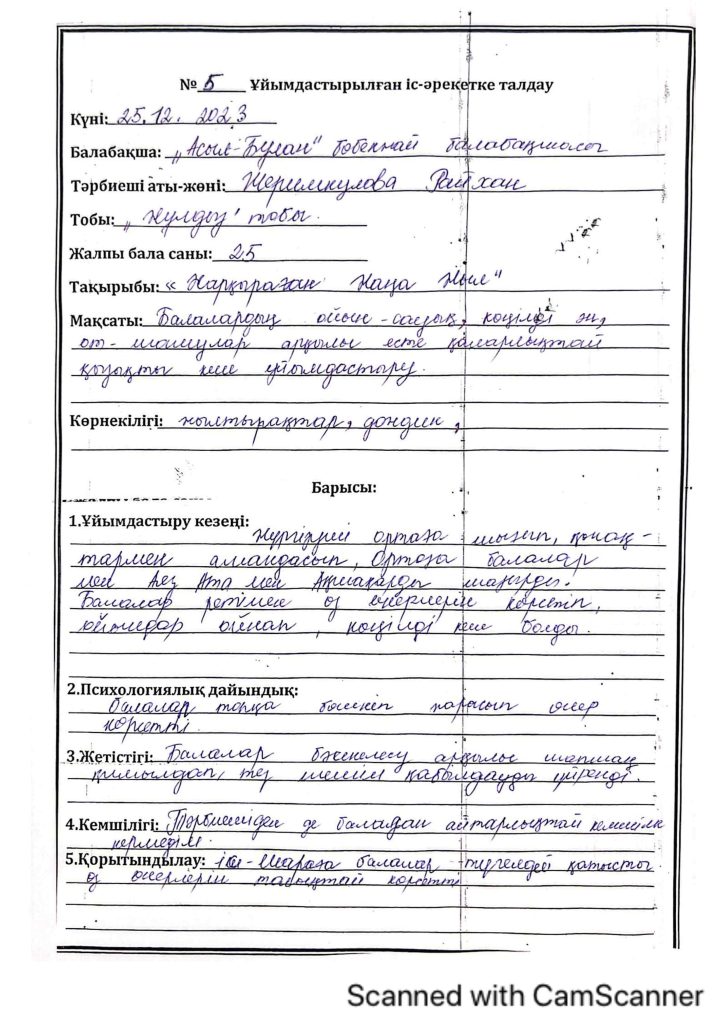 № 5 Ұйымдастырылған іс-әрекетке талдау
Күні: 25.12.2023
Балабақша: „Асыл-Бұлан" бөбекжай балабақшасы
Тәрбиеші аты-жөні: Жеримкулова Райхан
Тобы: „Жұлдыз" тобы.
Жалпы бала саны: 25
Тақырыбы: « Жарқыраған Жаңа жыл"
Мақсаты: Балалардың ойын-сауық, көңілді ән,
от-шашулар арқылы есте қаларлықтай
қызықты кеш ұйымдастыру.
Көрнекілігі: жылтырақтар, дождик,
Барысы:
1.Ұйымдастыру кезеңі:
Жүргізуші ортаға шығып, қонақ-
тармен амандасып, Ортаға балалар
мен Аяз Ата мен Ақшақарды шақырды.
Балалар ретімен өз өнерлерін көрсетіп,
ойындар ойнап, көңілді кеш болды.
2.Психологиялық дайындық:
балалар топқа бөлініп жарысып өнер
көрсетті.
3.Жетістігі: Балалар бәсекелесу арқылы шапшаң
қимылдап, тез шешім қабылдауды үйренді.
4.Кемшілігі: Тәрбиешіден де баладан айтарлықтай кемшілік
көрмедім.
5.Қорытындылау: іс-шараға балалар түгелдей қатысты
өз өнерлерін табыстай көрсетті
Scanned with CamScanner